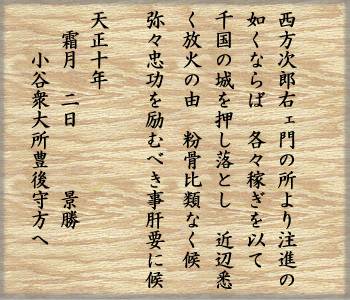 西方次郎右ェ門の所より注進の
如くならば　各々稼ぎを以て
千国の城を押し落とし　近辺悉
く放火の由　粉骨比類なく候
弥々忠功を励むべき事肝要に候
天正十年
霜月　二日　　景勝
小谷衆大所豊後守方へ